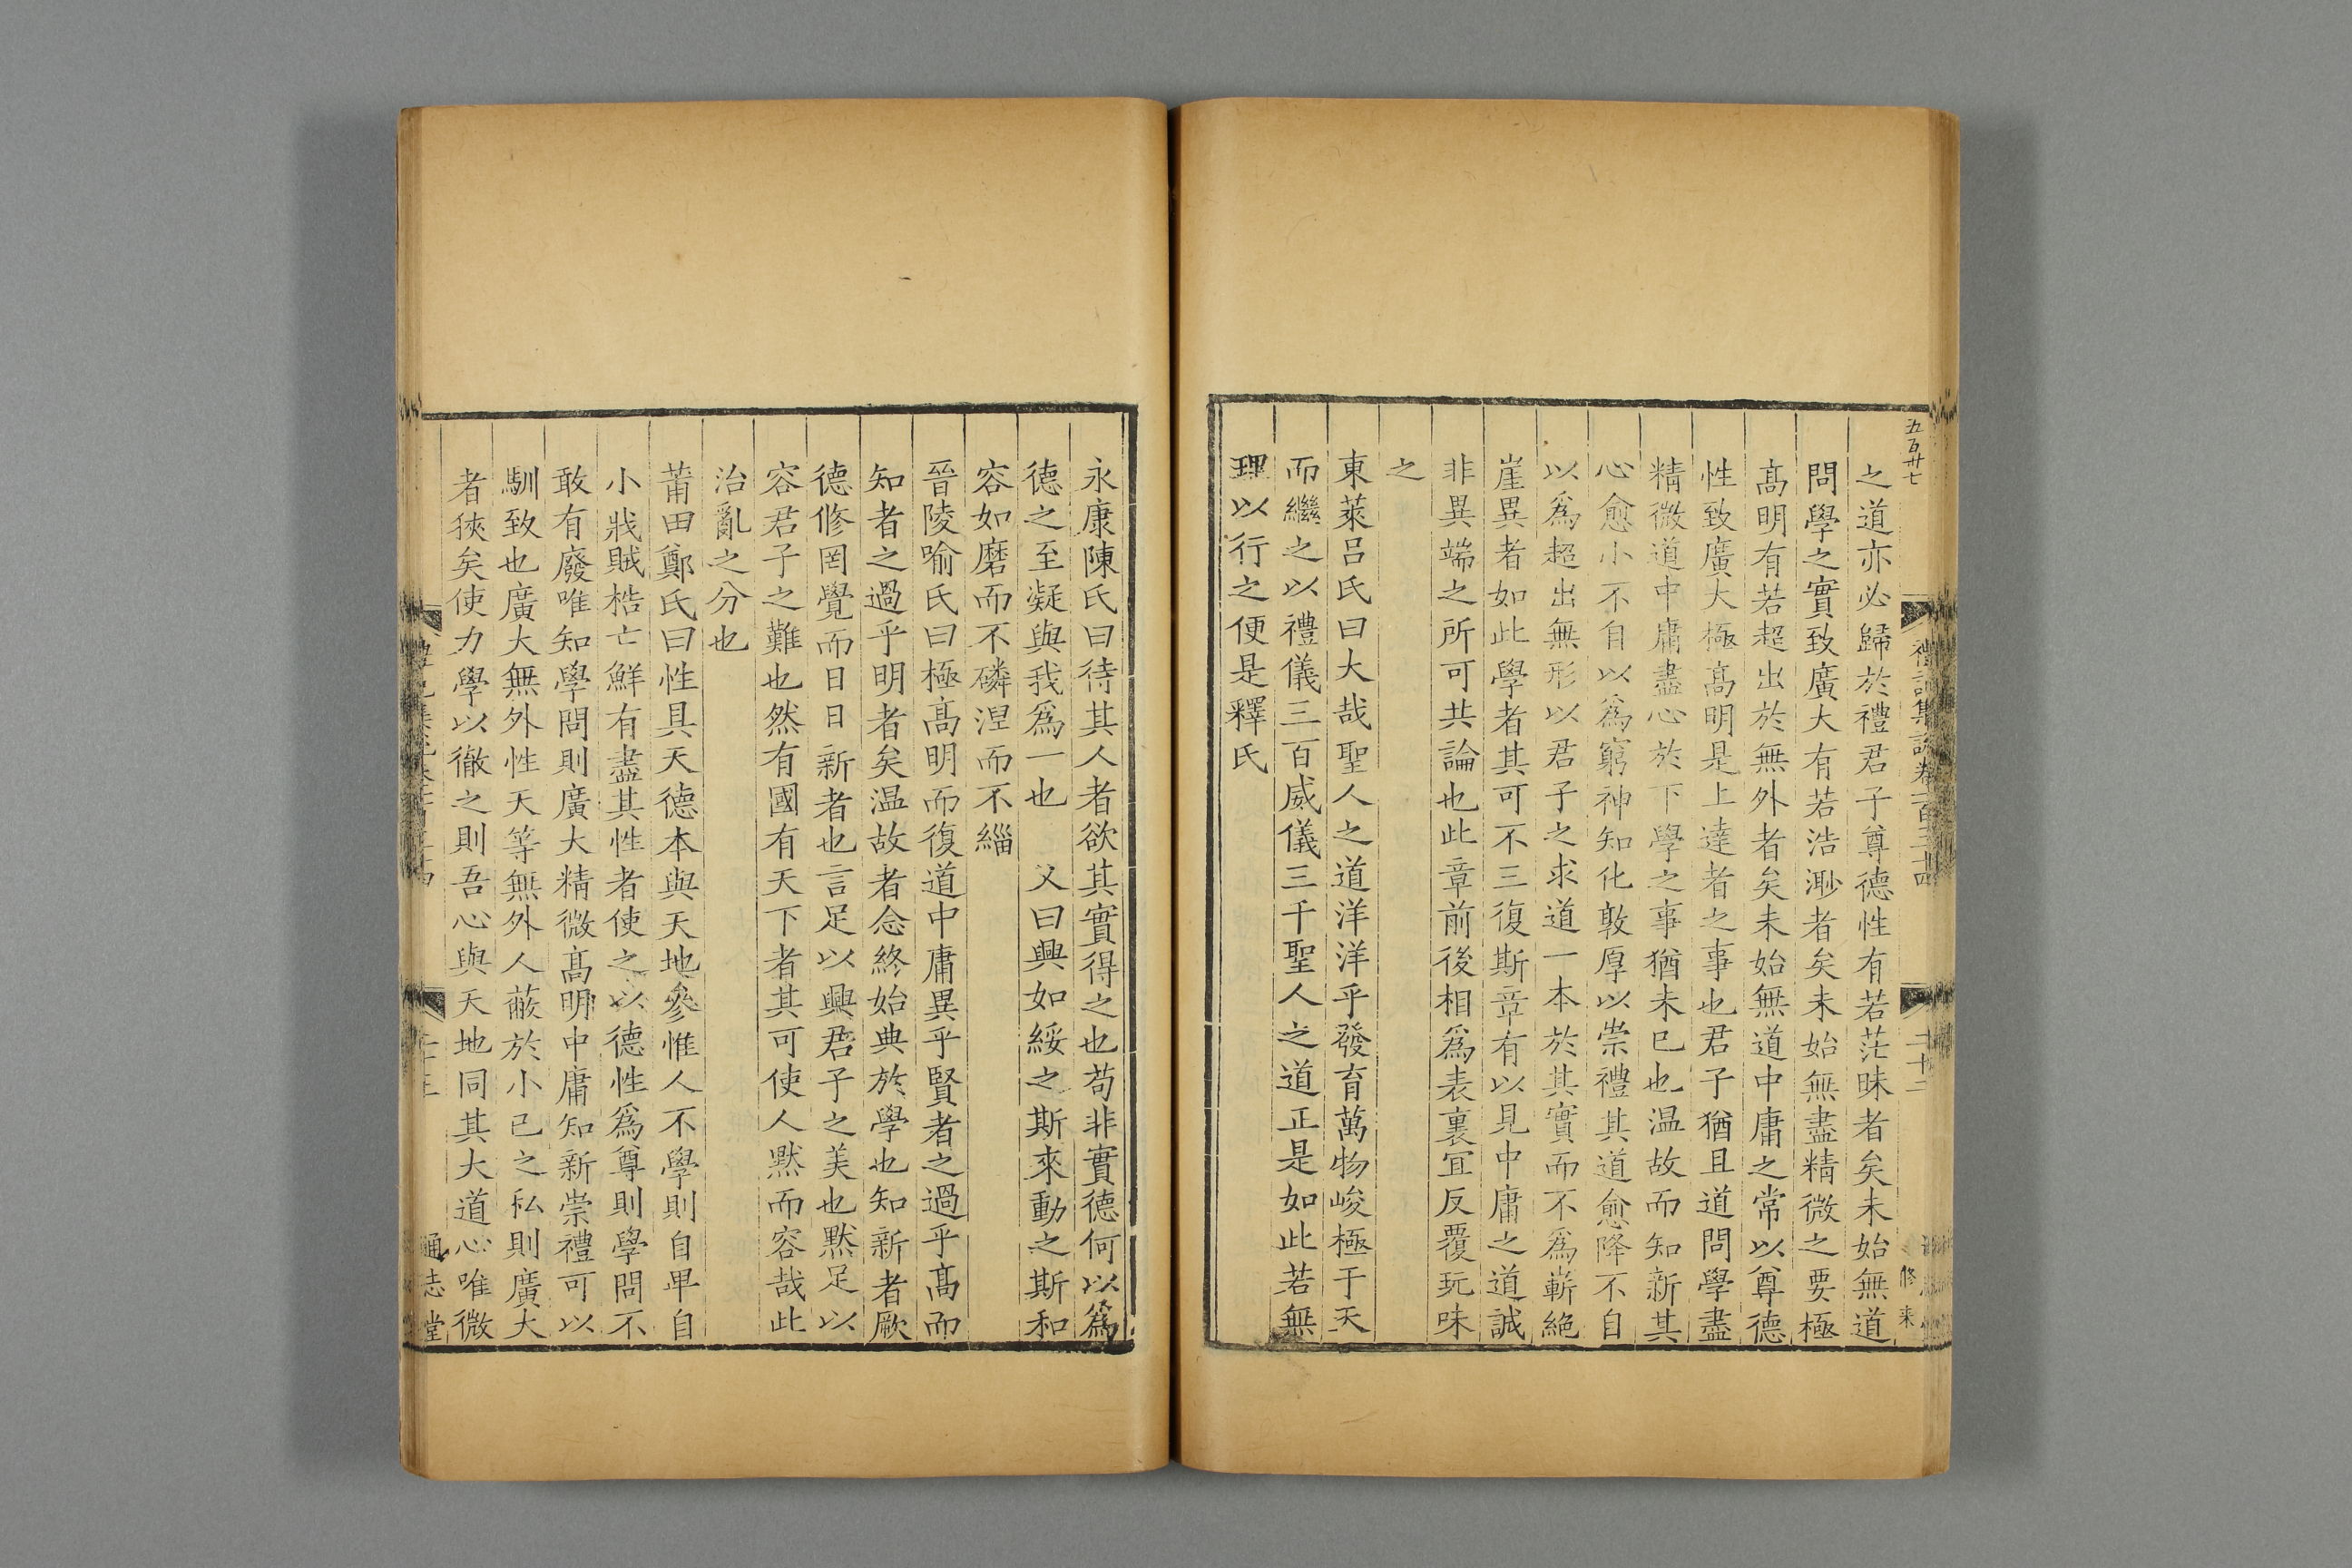 五百廿七
之道亦必歸於禮君子尊德性有若茫昧者矣未始無道
問學之實致廣大有若浩渺者矣未始無盡精微之要極
髙明有若超出於無外者矣未始無道中庸之常以尊德
性致廣大極髙明是上達者之事也君子猶且道問學盡
精微道中庸盡心於下學之事猶未已也温故而知新其
心愈小不自以爲窮神知化敦厚以崇禮其道愈降不自
以爲超出無形以君子之求道一本於其實而不爲嶄絶
崖異者如此學者其可不三復斯章有以見中庸之道誠
非異端之所可共論也此章前後相爲表裏宜反覆玩味
之
東萊吕氏曰大哉聖人之道洋洋乎發育萬物峻極于天
而繼之以禮儀三百威儀三千聖人之道正是如此若無
理以行之便是釋氏
禮記集說卷一百三十四
二十二
修
来
永康陳氏曰待其人者欲其實得之也苟非實德何以爲
德之至凝與我爲一也　又曰興如綏之斯來動之斯和
容如磨而不磷涅而不緇
晉陵喻氏曰極髙明而復道中庸異乎賢者之過乎髙而
知者之過乎明者矣温故者念終始典於學也知新者厥
德修罔覺而日日新者也言足以興君子之美也默足以
容君子之難也然有國有天下者其可使人默而容哉此
治亂之分也
莆田鄭氏曰性具天德本與天地參惟人不學則自卑自
小戕賊梏亡鮮有盡其性者使之以德性爲尊則學問不
敢有廢唯知學問則廣大精微髙明中庸知新崇禮可以
馴致也廣大無外性天等無外人蔽於小已之私則廣大
者狹矣使力學以徹之則吾心與天地同其大道心唯微
通志堂